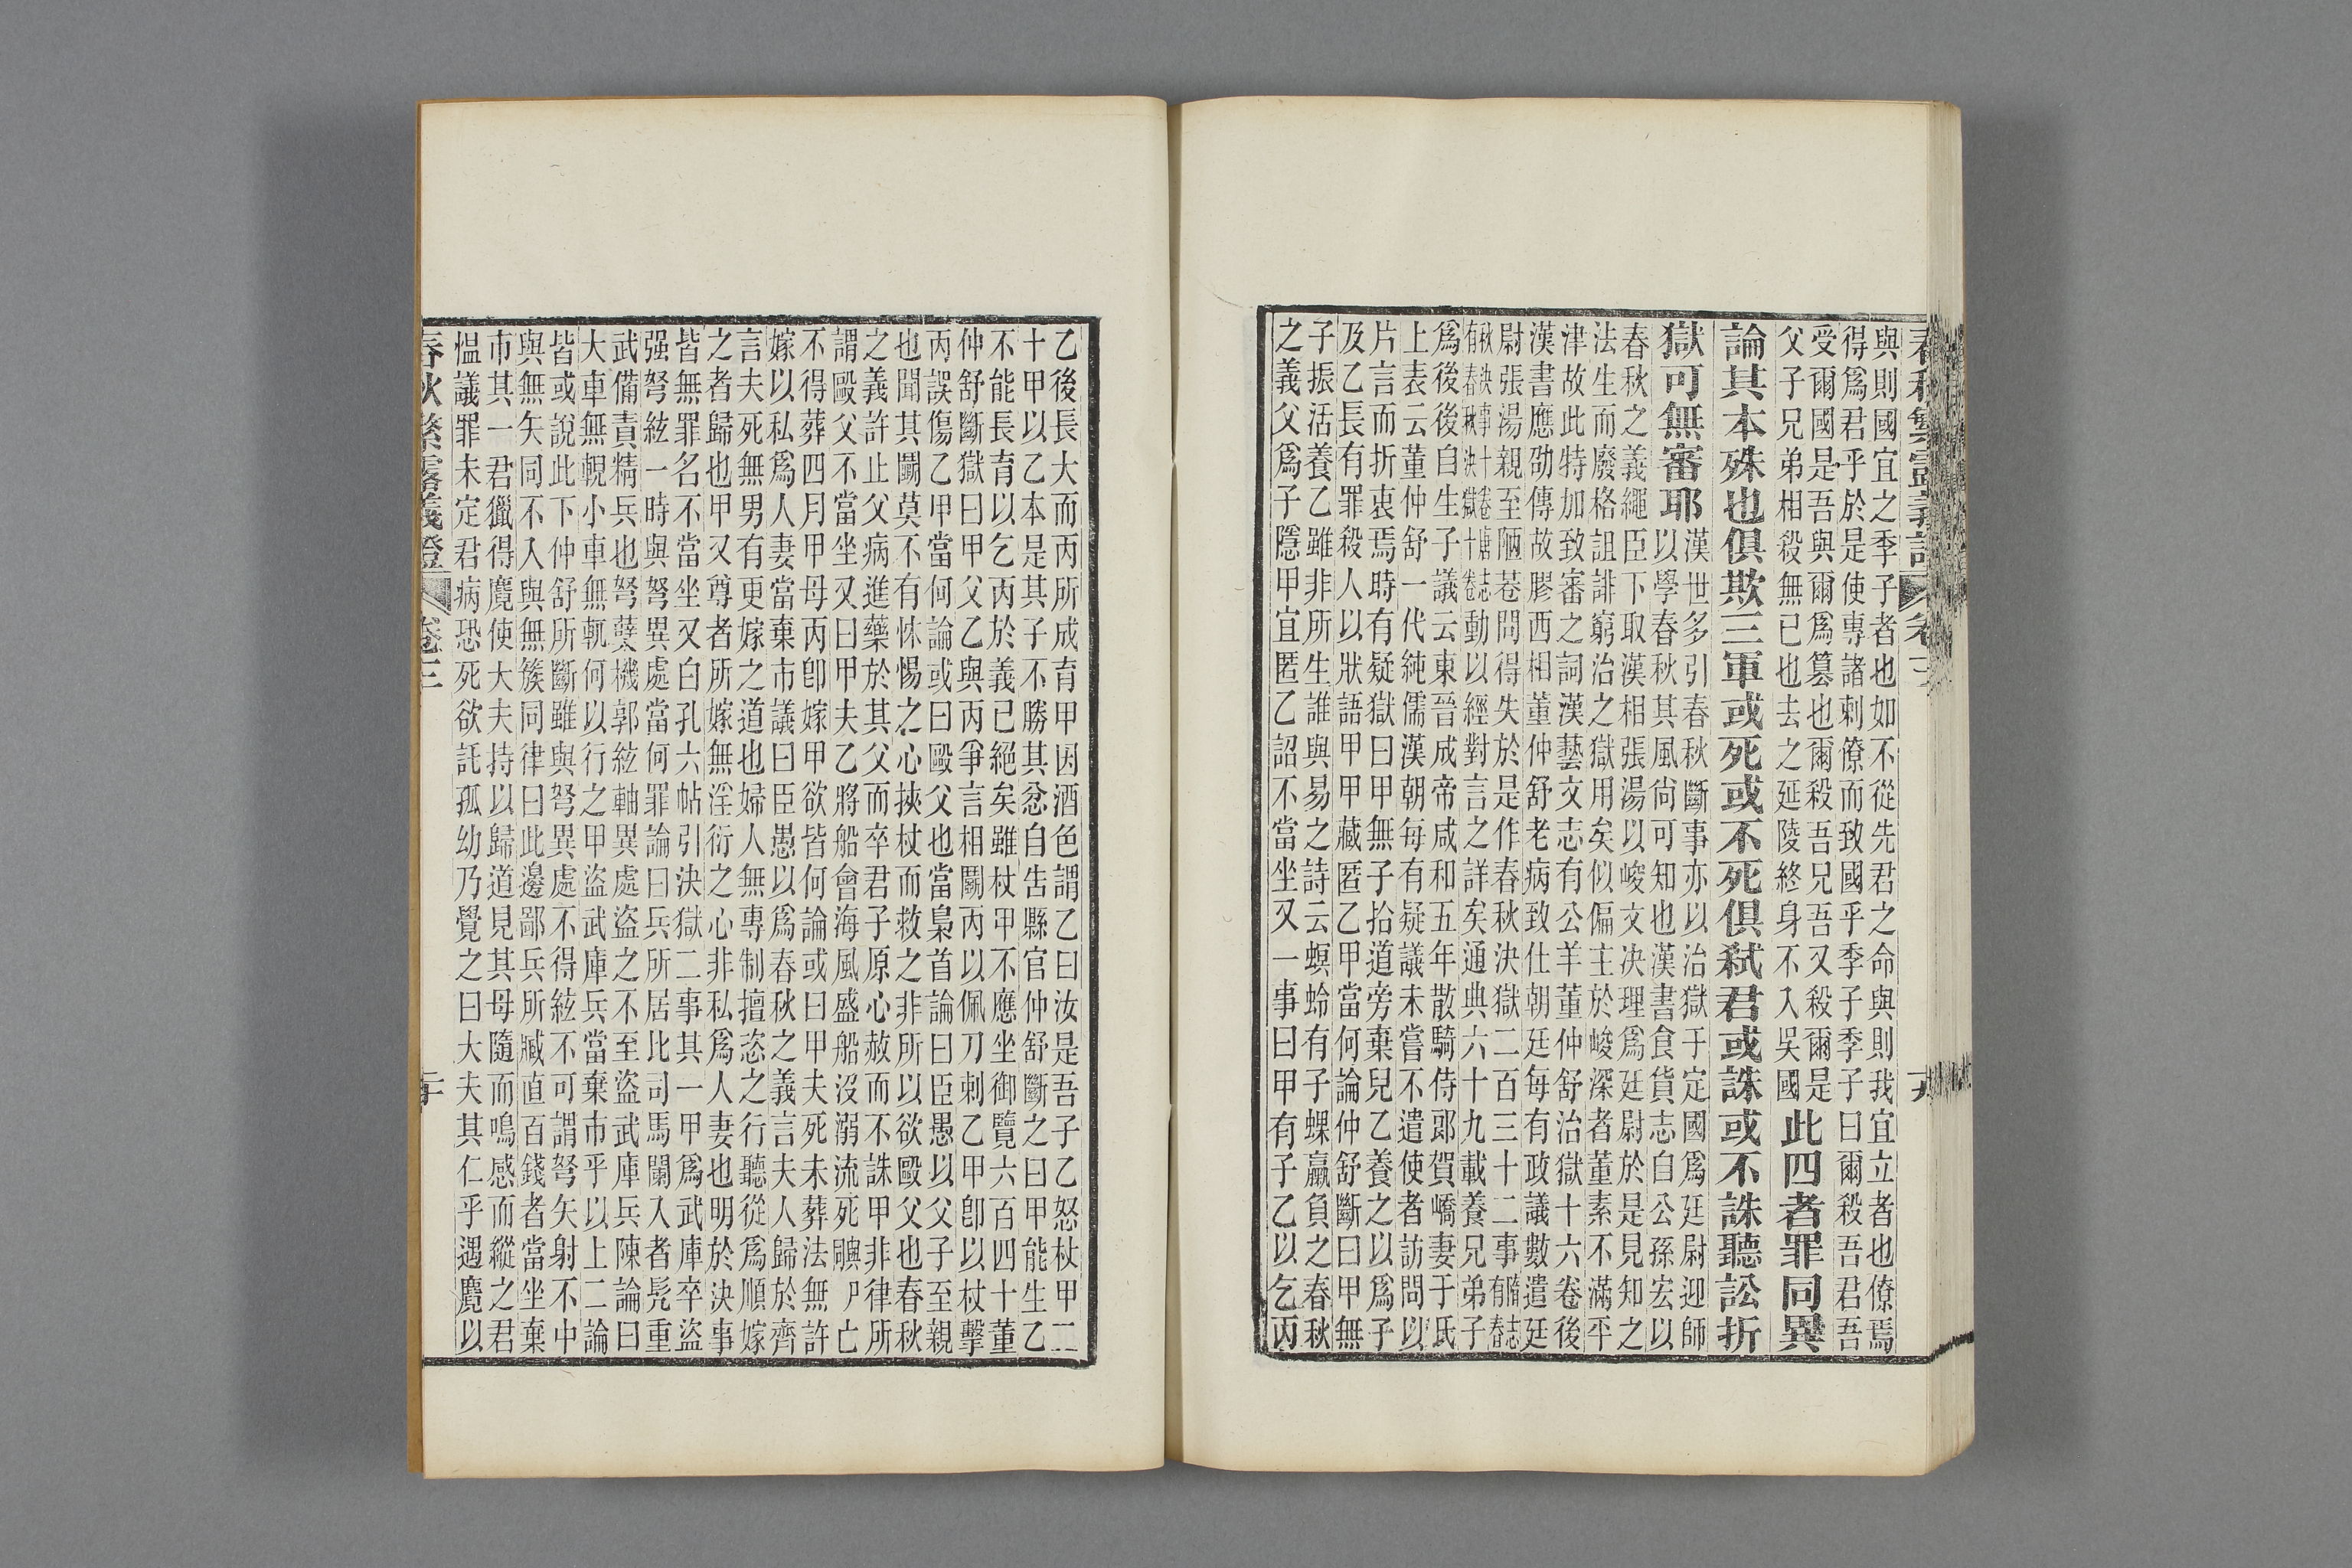 春秋繁露義證 卷三 十九
與則國宜之季子者也如不從先君之命與則我宜立者也僚焉
得爲君乎於是使專諸刺僚而致國乎季子季子曰爾殺吾君吾
受爾國是吾與爾爲篡也爾殺吾兄吾又殺爾是
父子兄弟相殺無已也去之延陵終身不入吳國
此四者罪同異
論其本殊也俱欺三軍或死或不死俱弒君或誅或不誅聽訟折
獄可無審耶
漢世多引春秋斷事亦以治獄于定國爲廷尉迎師
以學春秋其風尙可知也漢書食貨志自公孫宏以
春秋之義繩臣下取漢相張湯以峻文決理爲廷尉於是見知之
法生而廢格詛誹窮治之獄用矣似偏主於峻深者董素不滿平
津故此特加致審之詞漢藝文志有公羊董仲舒治獄十六卷後
漢書應劭傳故膠西相董仲舒老病致仕朝廷每有政議數遣廷
尉張湯親至陋巷問得失於是作春秋決獄二百三十二事隋志有春
秋決事十卷唐志有春秋決獄十卷動以經對言之詳矣通典六十九載養兄弟子
爲後後自生子議云東晉成帝咸和五年散騎侍郎賀嶠妻于氏
上表云董仲舒一代純儒漢朝每有疑議未嘗不遣使者訪問以
片言而折衷焉時有疑獄曰甲無子拾道旁棄兒乙養之以爲子
及乙長有罪殺人以狀語甲甲藏匿乙甲當何論仲舒斷曰甲無
子振活養乙雖非所生誰與易之詩云螟蛉有子蜾蠃負之春秋
之義父爲子隱甲宜匿乙詔不當坐又一事曰甲有子乙以乞丙
乙後長大而丙所成育甲因酒色謂乙曰汝是吾子乙怒杖甲二
十甲以乙本是其子不勝其忿自告縣官仲舒斷之曰甲能生乙
不能長育以乞丙於義已絕矣雖杖甲不應坐御覽六百四十董
仲舒斷獄曰甲父乙與丙爭言相鬬丙以佩刀刺乙甲卽以杖擊
丙誤傷乙甲當何論或曰毆父也當梟首論曰臣愚以父子至親
也聞其鬬莫不有怵惕之心挾杖而救之非所以欲毆父也春秋
之義許止父病進藥於其父而卒君子原心赦而不誅甲非律所
謂毆父不當坐又曰甲夫乙將船會海風盛船沒溺流死亡
不得葬四月甲母丙卽嫁甲欲皆何論或曰甲夫死未葬法無許
嫁以私爲人妻當棄市議曰臣愚以爲春秋之義言夫人歸於齊
言夫死無男有更嫁之道也婦人無專制擅恣之行聽從爲順嫁
之者歸也甲又尊者所嫁無淫衍之心非私爲人妻也明於決事
皆無罪名不當坐又白孔六帖引決獄二事其一甲爲武庫卒盜
强弩絃一時與弩異處當何罪論曰兵所居比司馬闌入者髡重
武備責精兵也弩蘖機郭絃軸異處盜之不至盜武庫兵陳論曰
大車無輗小車無軏何以行之甲盜武庫兵當棄市乎以上二論
皆或說此下仲舒所斷雖與弩異處不得絃不可謂弩矢射不中
與無矢同不入與無簇同律曰此邊鄙兵所贓直百錢者當坐棄
市其一君獵得麑使大夫持以歸道見其母隨而鳴感而縱之君
愠議罪未定君病恐死欲託孤幼乃覺之曰大夫其仁乎遇麑以
春秋繁露義證 卷三 二十